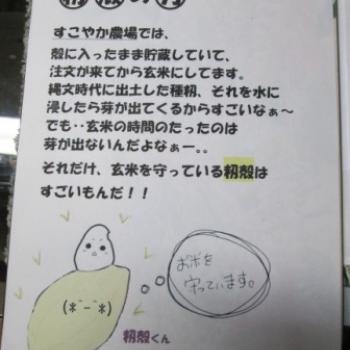 すこやか農場では、
殻に入ったまま貯蔵していて、
注文が来てから玄米にしてます。
縄文時代に出土した種籾、それを水に
浸したら芽が出てくるからすごいなぁ～
でも‥玄米の時間のたったのは
芽が出ないんだよなぁー。。
それだけ、玄米を守っている籾殻は
すごいもんだ！！
お米を
守っています。
(*´-`*)
籾殻くん